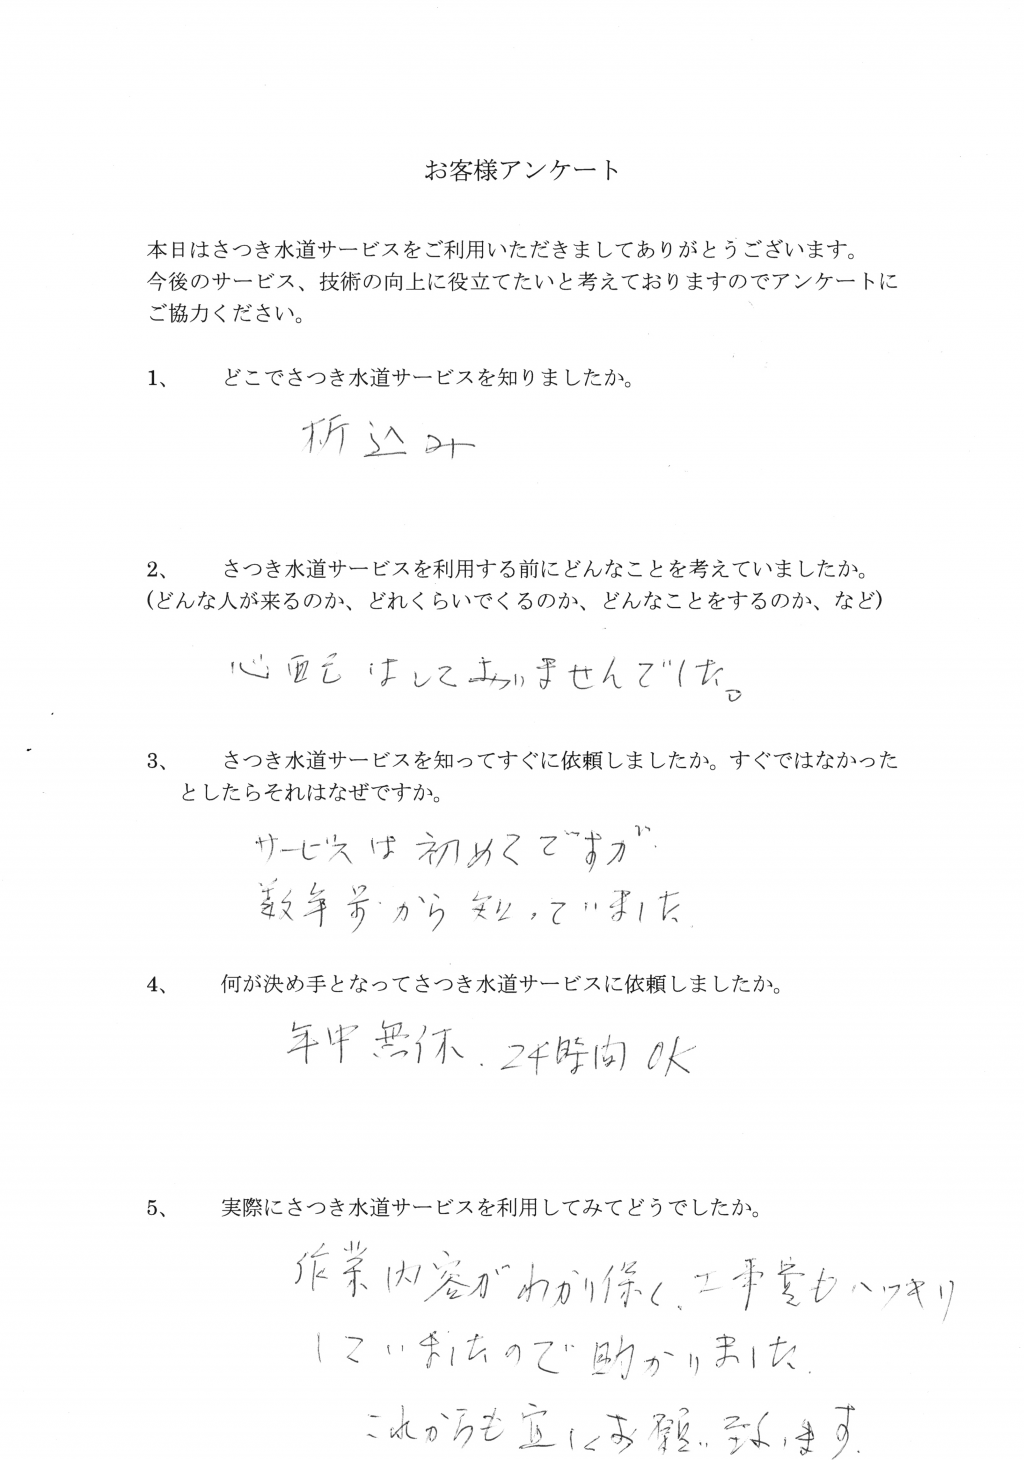 お客様アンケート
本日はさつき水道サービスをご利用いただきましてありがとうございます。
今後のサービス、技術の向上に役立てたいと考えておりますのでアンケートに
ご協力ください。
1、 どこでさつき水道サービスを知りましたか。
折込み
2、 さつき水道サービスを利用する前にどんなことを考えていましたか。
(どんな人が来るのか、どれくらいでくるのか、どんなことをするのか、など)
心配はしておりませんでした。
3、 さつき水道サービスを知ってすぐに依頼しましたか。すぐではなかった
としたらそれはなぜですか。
サービスは初めてですが
数年前から知っていました
4、 何が決め手となってさつき水道サービスに依頼しましたか。
年中無休、24時間OK
5、 実際にさつき水道サービスを利用してみてどうでしたか。
作業内容がわかり易く、工事費もハッキリ
していましたので助かりました。
これからも宜しくお願い致します。